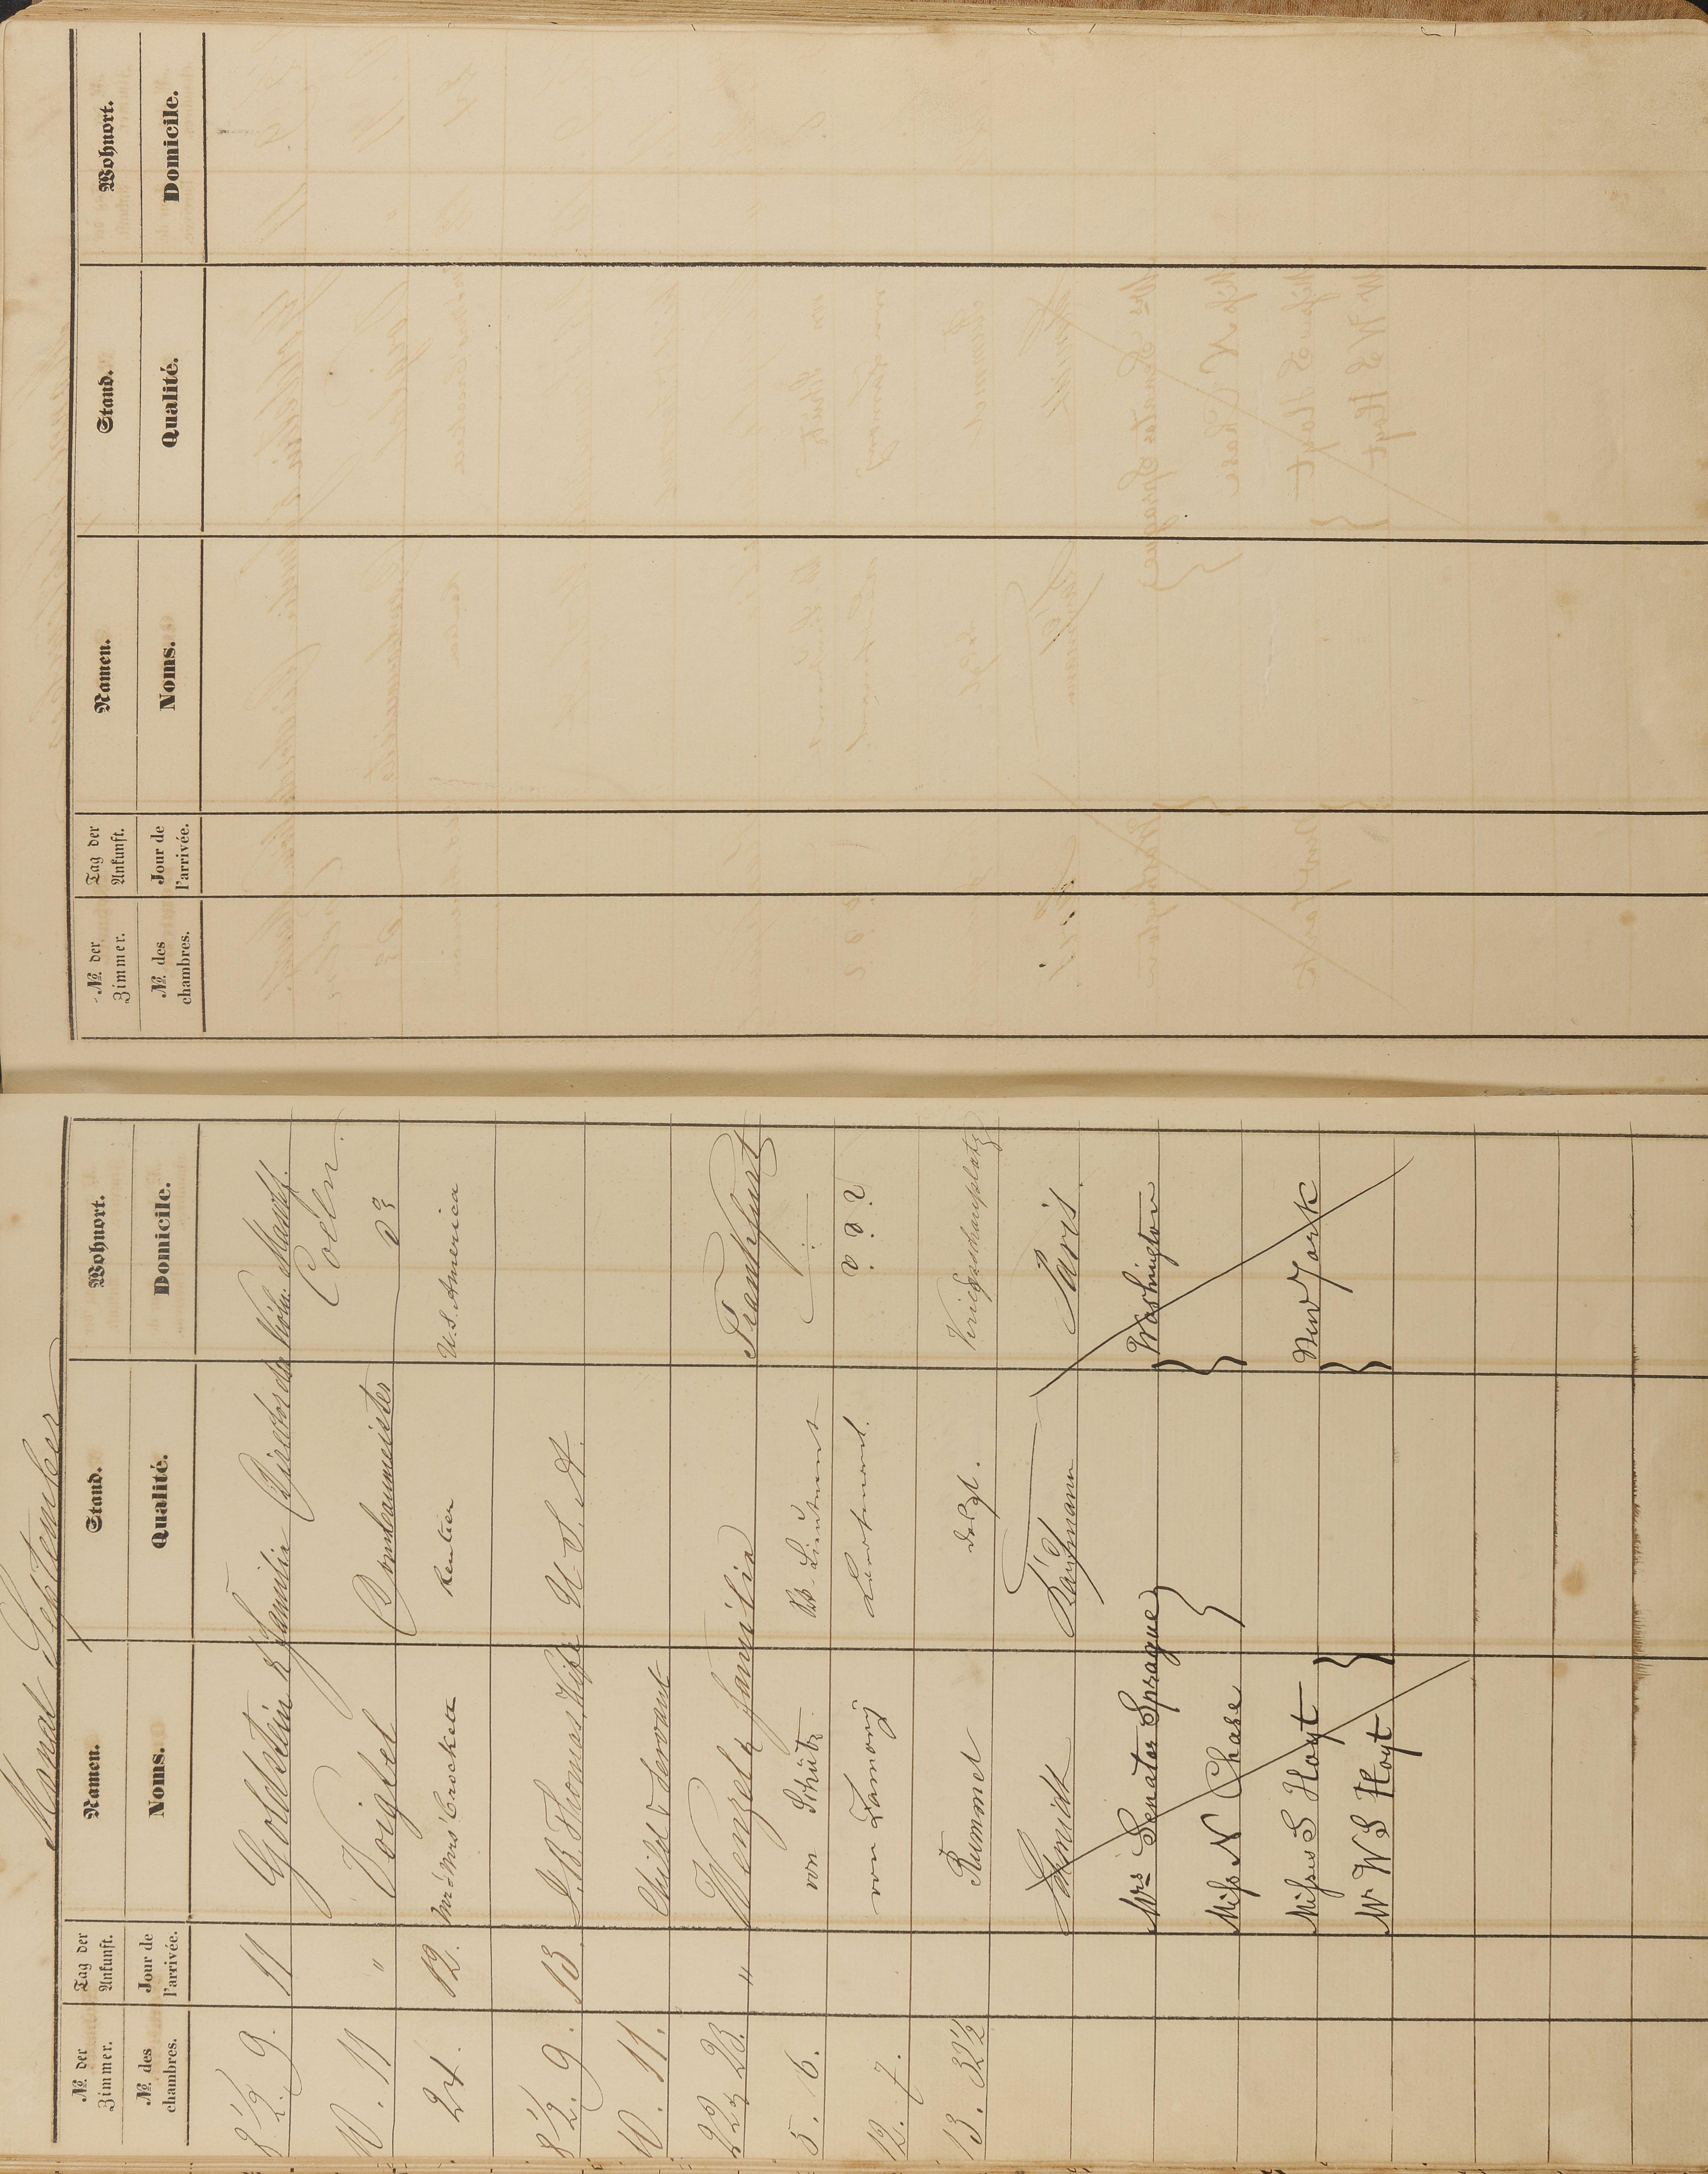 Monat September
№. der Zimmer. Tag der Ankunft. Namen. Stand. Wohnort.
№. des chambres. Jour de l'arrivée. Noms. Qualité. Domicile.
8½. 9. 11 Goldstein & Familie Director der Köln.
10. 11 " Voigtel Dombaumeister Coeln.
24. 12. Mr & Mrs Crockett Rentier U.S. America
8½. 9. 13. J. B. Thomas, Wife U. S. A.
10. 11. Child & Servant
22 & 23. " Wenzel & Familie Frankfurt
5. 6. von Schütz
12. 7. von Lieutenant. ? ? ?
13. 32½ Rummel Kriegsschauplatz
Schmidt Kaufmann Paris.
Mrs Senator Sprague } } Washington
Miss N Chase
Misses S Hoyt } } New York
Mr W S Hoyt
№. der Zimmer. Tag der Ankunft. Namen. Stand. Wohnort.
№. des chambres. Jour de l'arrivée. Noms. Qualité. Domicile.